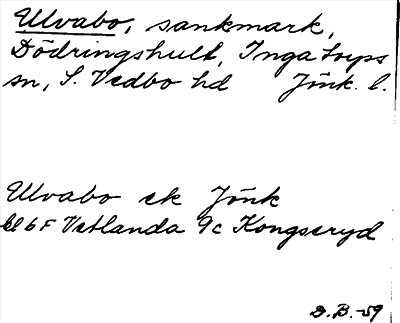 Ulvabo, sankmark,
Dödringshult, Ingatorps
sn, S. Vedbo hd Jönk. l.
Ulvabo ek Jönk
bl 6F Vetlanda 9c Kongseryd
D.B.-59